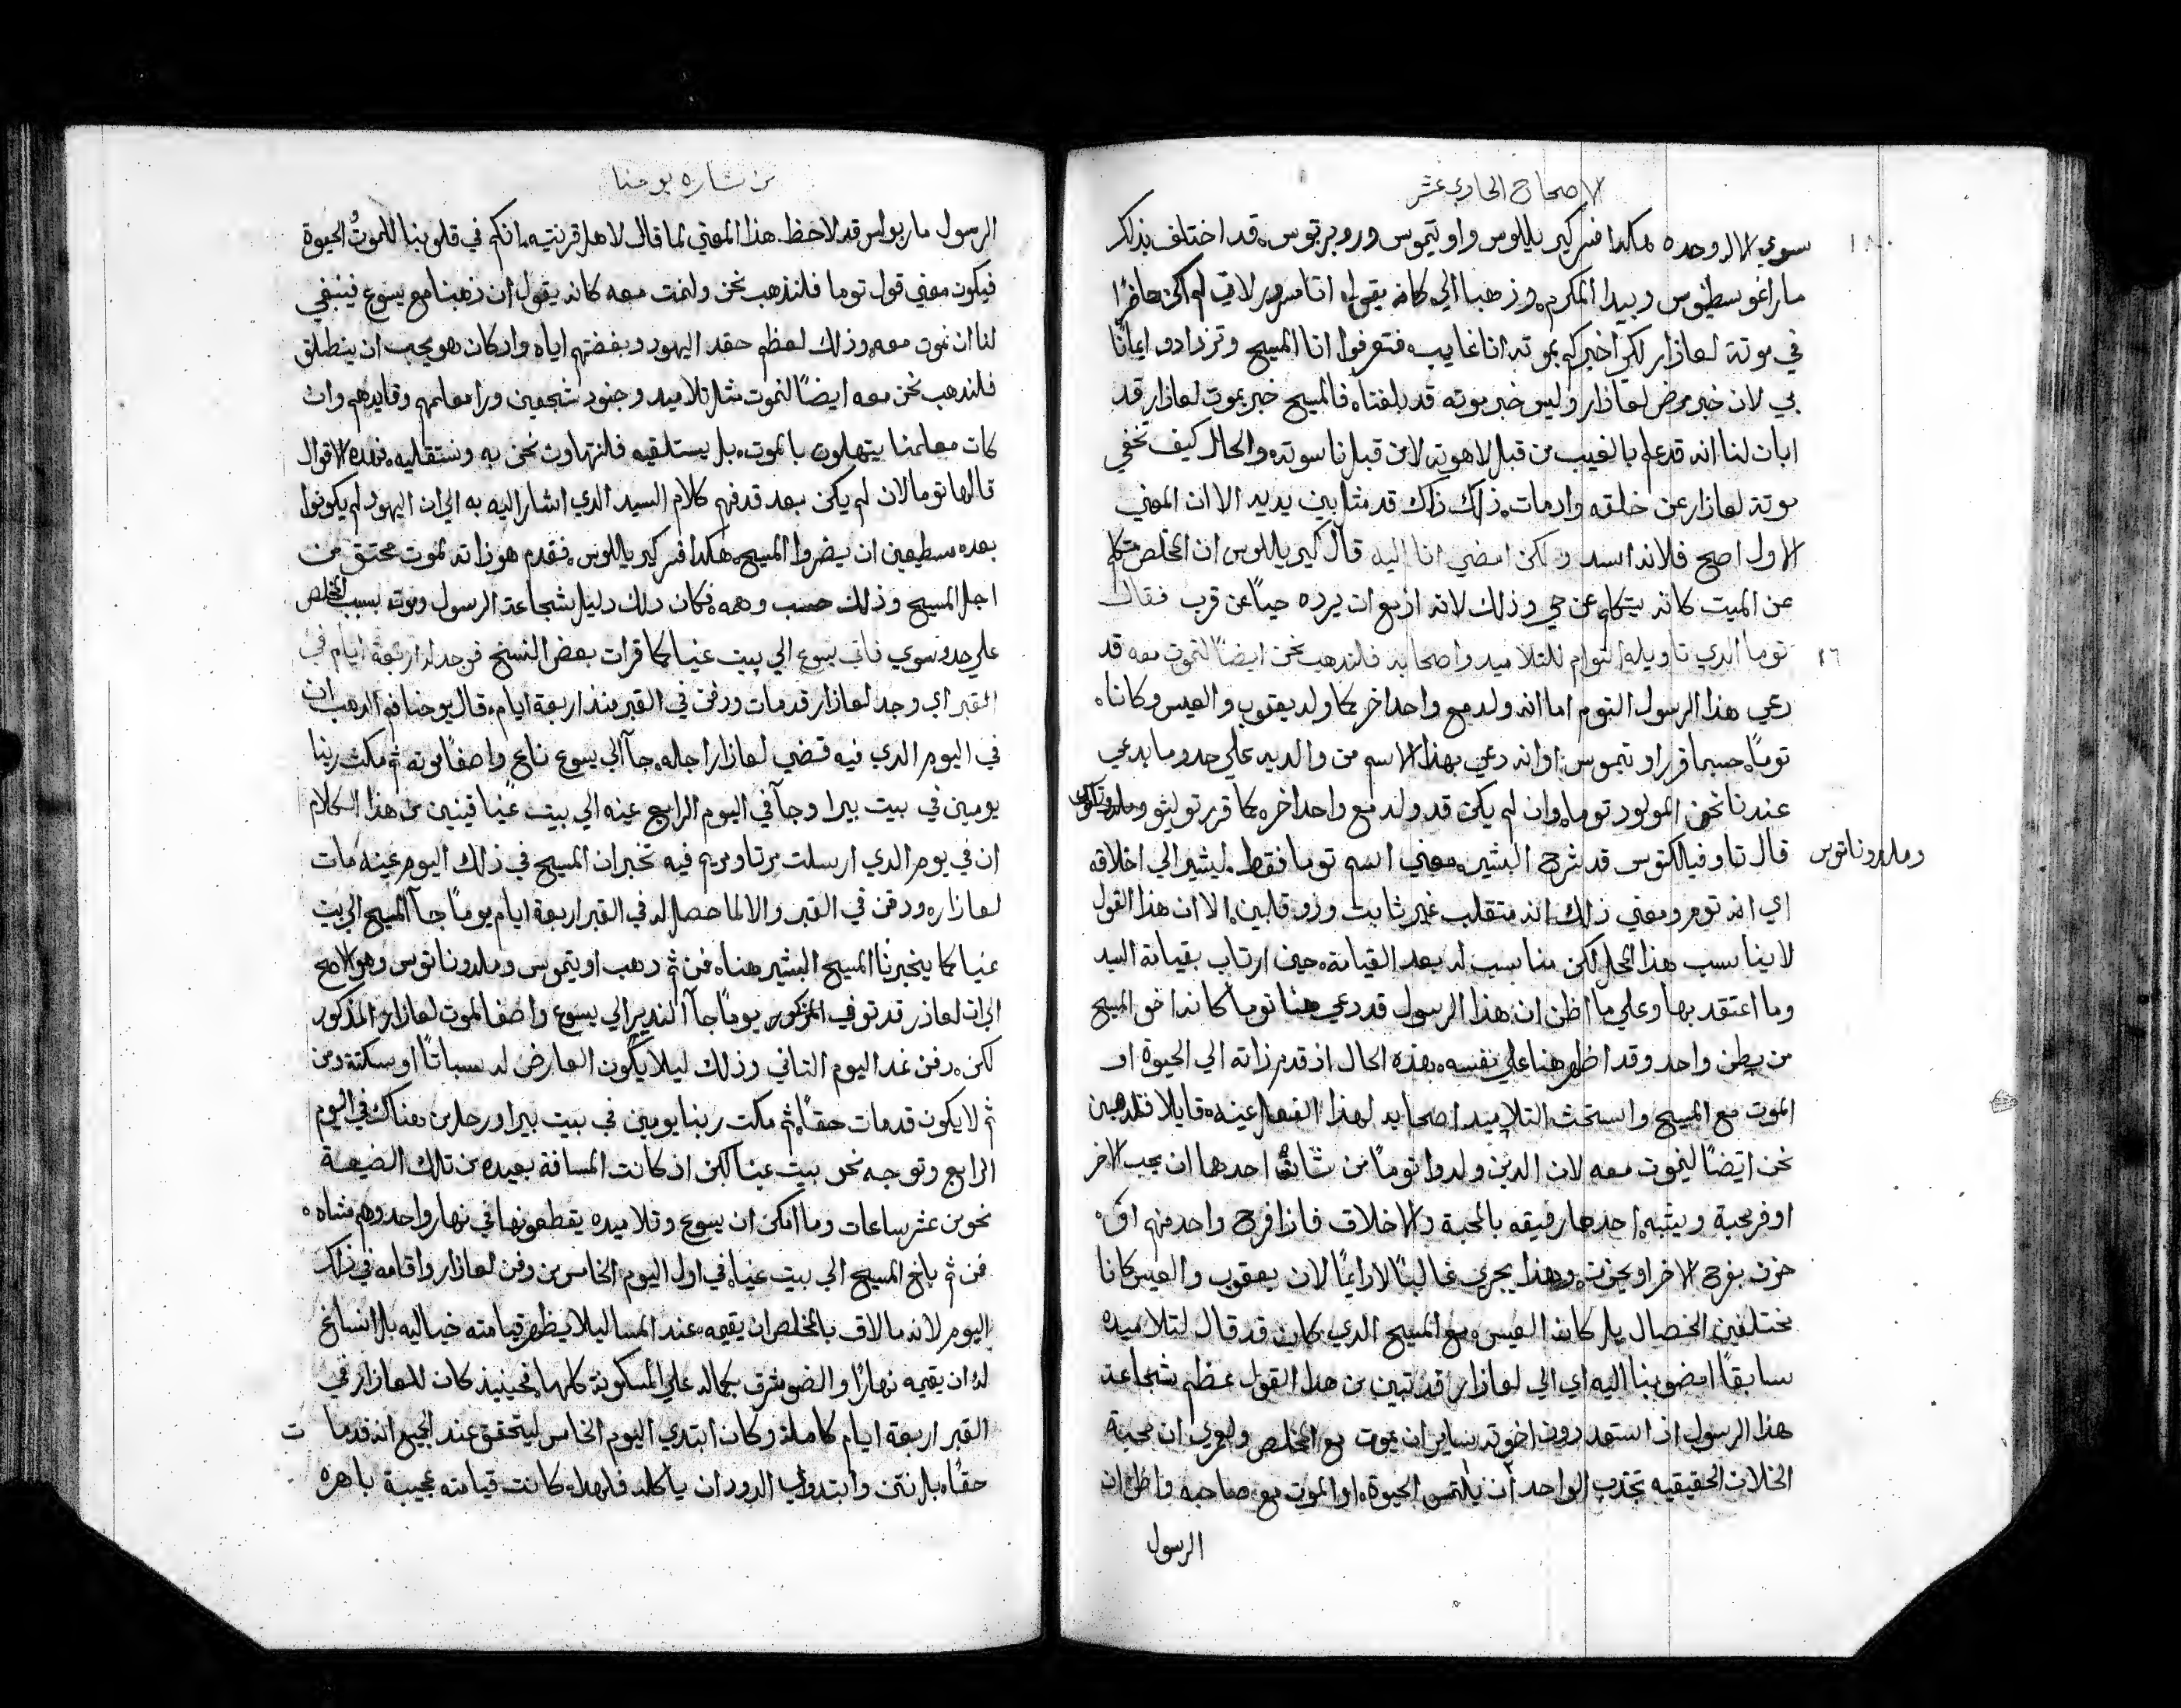 الاصحاح الحادي عشر
سوي الا لروحده هكذا فسر كيرياللوس واوتيموس وروبرتوس قد اختلف بذلك
ماراغوسطنوس وبيدا المكرم وزهبا الي كانه يقول انا مسرور لاني لم اكن حاضرًا
في موتة لعازار لكن اخبركم بموته انا غايب فتعرفوا انا المسيح وتزدادو ايمانًا
بي لان خبر مرض لعازار وليس خبر موته قد بلغناه فالمسيح خبر بموت لعازار قد
ابان لنا انه قد علم بالغيب من قبل لاهوته لا من قبل ناسوته والحال كيف تخفي
موتة لعازار عن خلقه واد مات ذلك ذاك قد مثل بين يديه الا ان المعني
الاول اصح فلانه اسد ولكن امضي انا اليه قال كيرياللوس ان المخلص تكلم
عن الميت كانه يتكلم عن حي وذلك لانه ازمع ان يرده حيًا عن قرب فقال
١٦ توما الدي تاويله التوام للتلاميد واصحابه فلندهب نحن ايضًا لنموت معه قد
دعي هذا الرسول التوم اما انه ولد مع واحد اخر كما ولد يعقوب والعيس وكانا
تومًا حسبما قرر اوتيموس او انه دعي بهذا الاسم من والديه علي حدو ما يدعي
عندنا نحن المولود توما وان لم يكن قد ولد مع واحد اخر كما قرر توليثو
وملدوناتوس
قال تاوفيالكتوس قد شرح البشير معني اسم توما فقط ليشير الي اخلاقه
اي انه توم ومعني ذلك انه متقلب غير ثابت وزو قلبين الا ان هذا القول
لا يناسب هذا المحل لكن مناسب له بعد القيامة حين ارتاب بقيامة السيد
وما اعتقد بها وعلي ما اظن ان هذا الرسول قد دعي هنا توما كانه اخو المسيح
من بطن واحد وقد اظهر هنا علي نفسه هذه الحال اذ قدم زاته الي الحيوة او
الموت مع المسيح واستحث التلاميد اصحابه لهذا الفعل عينه قايلا فلدهبن
نحن ايضًا لنموت معه لان الدين ولدوا تومًا من شانهم احدها ان يحب الاخر
اوفر محبة ويشبه احدها رفيقه بالمحبة والاخلاق فاذا فرح واحد منهم او
حزن يفرح الاخر او يحزن وهذا يجري غالبًا لا دايمًا لان يعقوب والعيس كانا
مختلفين الخصال بل كانه العيس مع المسيح الدي كان قد قال لتلاميده
سابقًا امضو بنا اليه اي الي لعازار قد تبين من هذا القول عظم شجاعة
هذا الرسول اذ استعد دون اخوته ان يموت مع المخلص ولعمري ان محبة
الخلان الحقيقيه تجذب الواحد ان يلتمس الحيوة او الموت مع صاحبه واظن ان
الرسول
من بشاره يوحنا
الرسول مار بولس قد لاحظ هذا المعني لما قال لاهل قرنتيه انكم في قلوبنا للموت والحيوة
فيكون معني قول توما فلندهب نحن ولنمت معه كانه يقول ان ذهبنا مع يسوع فينبغي
لنا ان نموت معه وذلك لعظم حقد اليهود وبغضتهم اياه واد كان هو يحب ان ينطلق
فلندهب نحن معه ايضًا لنموت مثل تلاميد وجنود شجعين ورا معلمهم وقايدهم وان
كان معلمنا يتهلون بالموت بل يستلقيه فلنتهاون نحن به ونستقليه فهده الاقوال
قالها توما لان لم يكن بعد قد فهم كلام السيد الدي اشار اليه به الي ان اليهود لم يكونوا
بعده مسطيعين ان يضروا المسيح هكدا فسر كيرياللوس فقدم هو زاته لموت محتق من
اجل المسيح وذلك حسب وهمه فكان دلك دليل شجاعة الرسول وموته بسبب المخلص
علي حدو سوي فاتي يسوع الي بيت عنيا كما قرات بعض النسخ فوجد له اربعة ايام في
القبر اي وجد لعازار قد مات ودفن في القبر منذ اربعة ايام قال يوحنا فم الدهب ان
في اليوم الدي فيه قضي لعازار اجله جآ الي يسوع ناع واصفًا موته ثم مكث ربنا
يومين في بيت بيرا وجآ في اليوم الرابع عينه الي بيت عنيا فينين من هذا الكلام
ان في يوم الدي ارسلت مرتا ومريم فيه تخبران المسيح في ذلك اليوم عينه مات
لعازار ودفن في القبر والا لما حصل له في القبر اربعة ايام يومًا جآ المسيح الي بيت
عنيا كما يخبرنا المسيح البشير هنا فمن ثم دهب اوتيموس وملدوناتوس وهو الاصح
الي ان لعاذر قد توفي المزكور يومًا جآ الندير الي يسوع واصفا لموت لعازار المذكور
لكن دفن غد اليوم التاني وذلك ليلا يكون العارض له سباتًا او سكتة ومن
ثم لا يكون قد مات حقًا ثم مكت ربنا يومين في بيت بيرا ورحل من هناك في اليوم
الرابع وتوجه نحو بيت عنيا لكن اذ كانت المسافة بعيده من تلك الضيعة
نحو من عشر ساعات وما امكن ان يسوع وتلاميده يقطعونها في نهار واحد وهم مشاه
فمن ثم بلغ المسيح الي بيت عنيا في اول اليوم الخامس من دفن لعازار واقامه في ذلك
اليوم لانه ما لاق بالمخلص ان يقيمه عند المسا ليلا يظهر قيامته خياليه بل انساغ
له ان يقيمه نهارًا والضو مشرق بكماله علي المسكونة كلها فحينيذ كان للعازار في
القبر اربعة ايام كاملة وكان ابتدي اليوم الخامس ليتحقق عند الجميع انه قد مات
حقًا بل نتن وابتدوا الدود ان ياكله فلهدا كانت قيامته عجيبة باهره